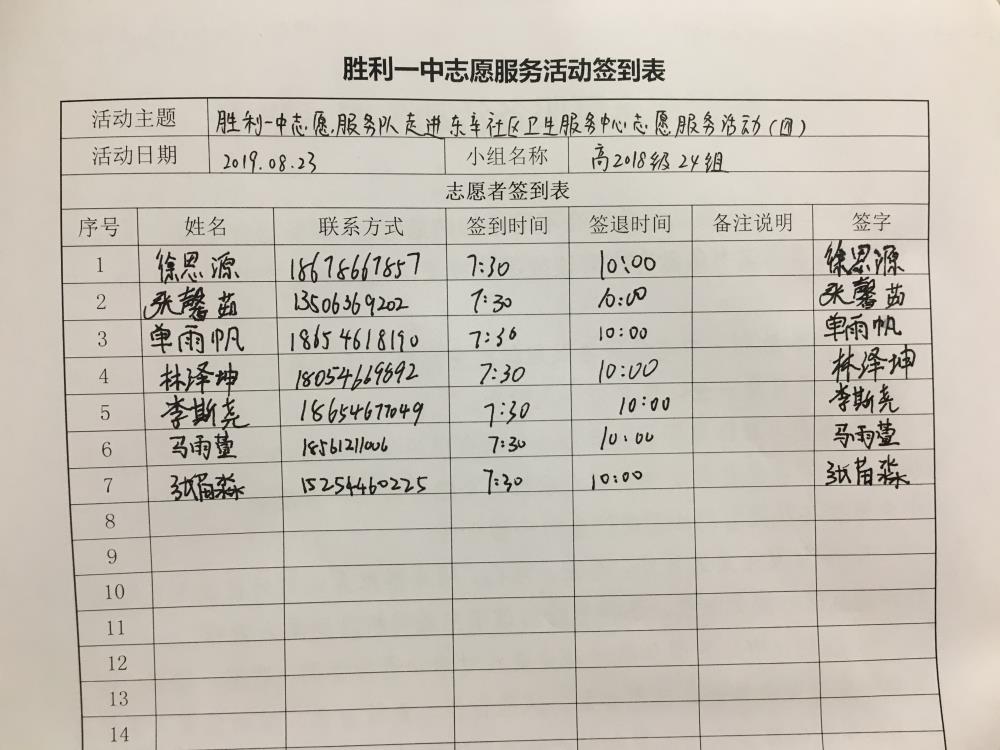 胜利一中志愿服务活动签到表
活动主题 胜利一中志愿服务队走进东辛社区卫生服务中心志愿服务活动(四)
活动日期 2019.08.23 小组名称 高2018级24组
志愿者签到表
序号 姓名 联系方式 签到时间 签退时间 备注说明 签字
1 徐思源 18678667857 7:30 10:00 徐思源
2 张馨茹 13506369202 7:30 10:00 张馨茹
3 单雨帆 18654618190 7:30 10:00 单雨帆
4 林泽坤 18054669892 7:30 10:00 林泽坤
5 李斯尧 18654677049 7:30 10:00 李斯尧
6 马雨萱 18561211006 7:30 10:00 马雨萱
7 张苗淼 15254460225 7:30 10:00 张苗淼
8
9
10
11
12
13
14